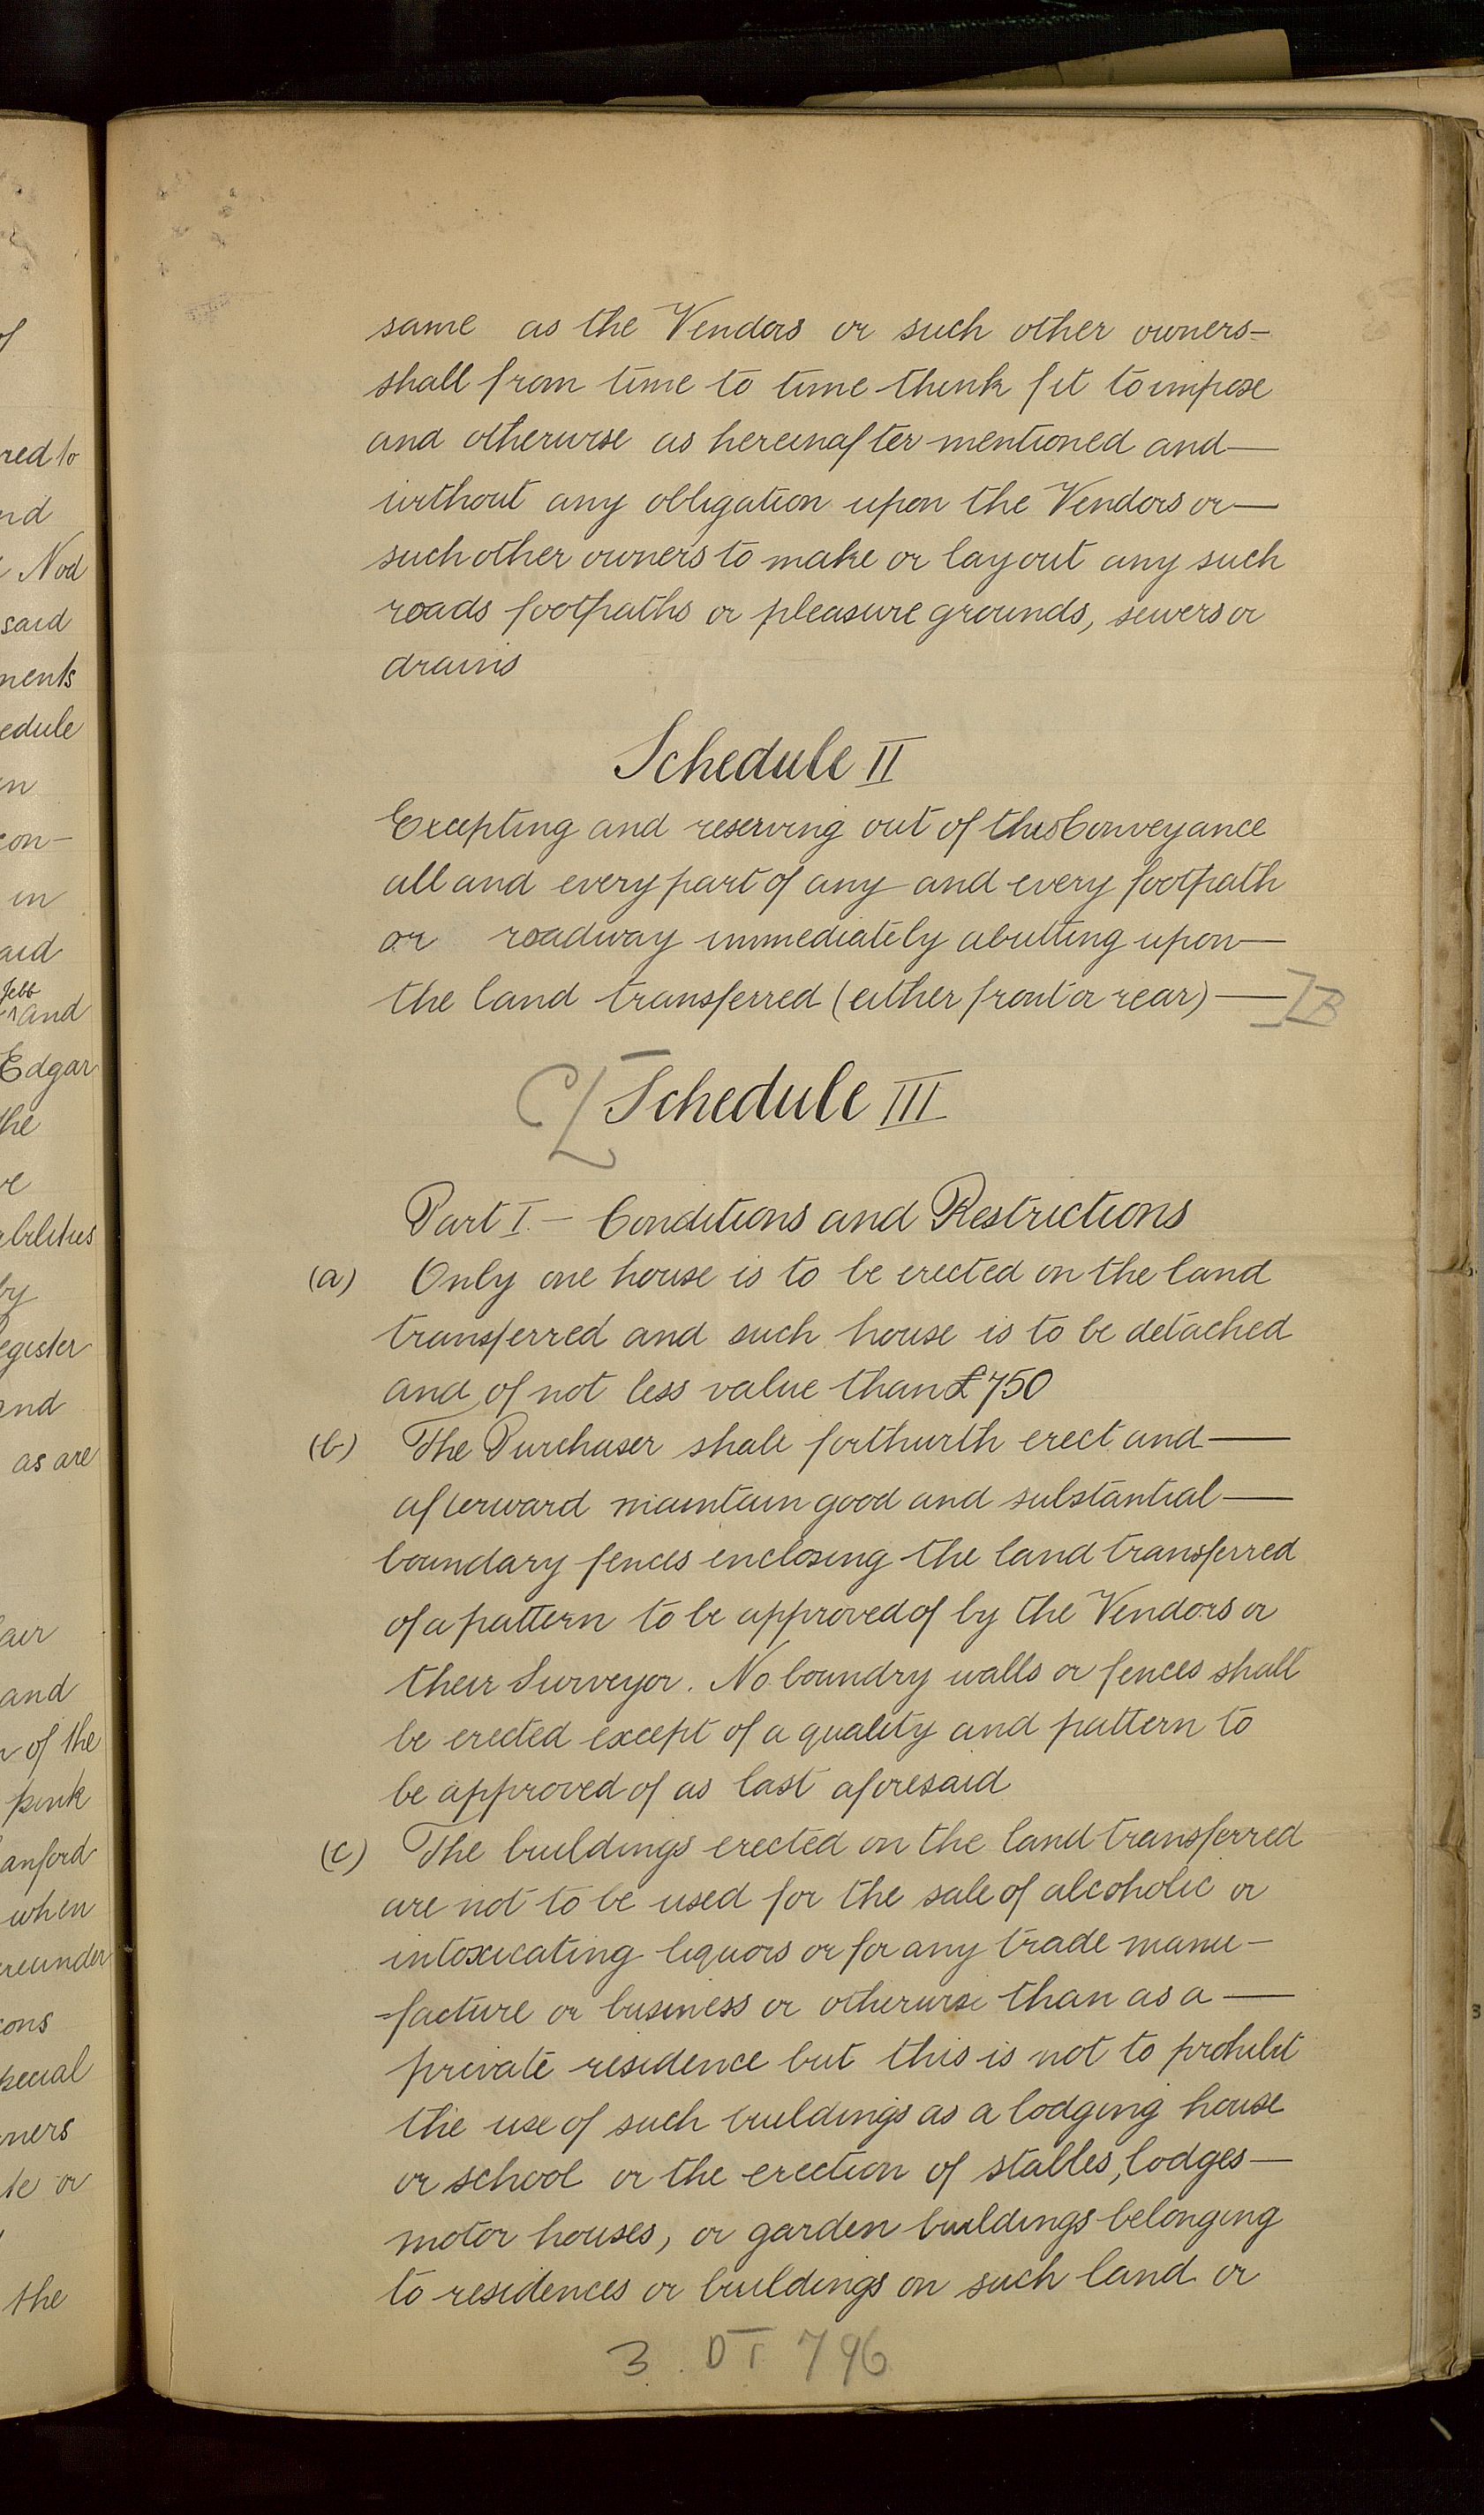 same as the Vendors or such other owners-
shall from time to time think fit to impose
and otherwise as hereinafter mentioned and—
without any obligation upon the Vendors or—
such other owners to make or lay out any such
roads footpaths or pleasure grounds, sewers or
drains
Schedule II
Excepting and reserving out of this Conveyance
all and every part of any and every footpath
or roadway immediately abutting upon—
the land transferred (either front or rear)— ]B
C[ Schedule III
Part I. – Conditions and Restrictions
(a) Only one house is to be erected on the land
transferred and such house is to be detached
and of not less value than £750
(b) The Purchaser shall forthwith erect and—
afterward maintain good and substantial—
boundary fences enclosing the land transferred
of a pattern to be approved of by the Vendors or
their Surveyor. No boundry walls or fences shall
be erected except of a quality and pattern to
be approved of as last aforesaid
(c) The buildings erected on the land transferred
are not to be used for the sale of alcoholic or
intoxicating liquors or for any trade manu-
-facture or business or otherwise than as a—
private residence but this is not to prohibit
the use of such buildings as a lodging house
or school or the erection of stables, lodges—
motor houses, or garden buildings belonging
to residences or buildings on such land or
3. DT 796
of
red to
nd
Nod
said
ments
edule
in
con-
in
aid
Jebb
^and
Edgar
the
ve
abilities
by
egister
and
as are
air
and
of the
pink
anford
when
ereunder
cons
pecial
ners
te or
the